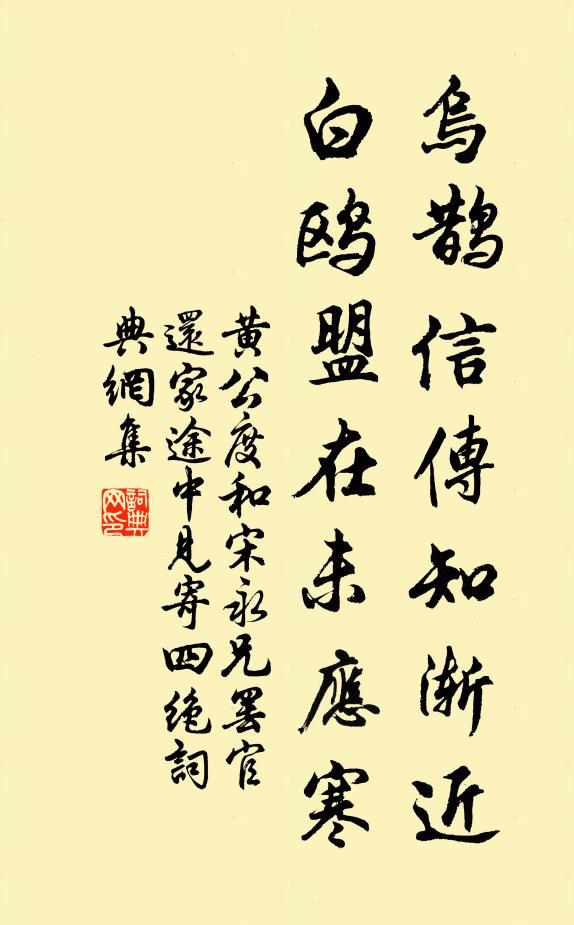 烏鵲信傳知漸近
白鷗盟在未應寒
黄公度和宋永兄罷官
還家途中見寄四絶詞
典網集
詞典網印